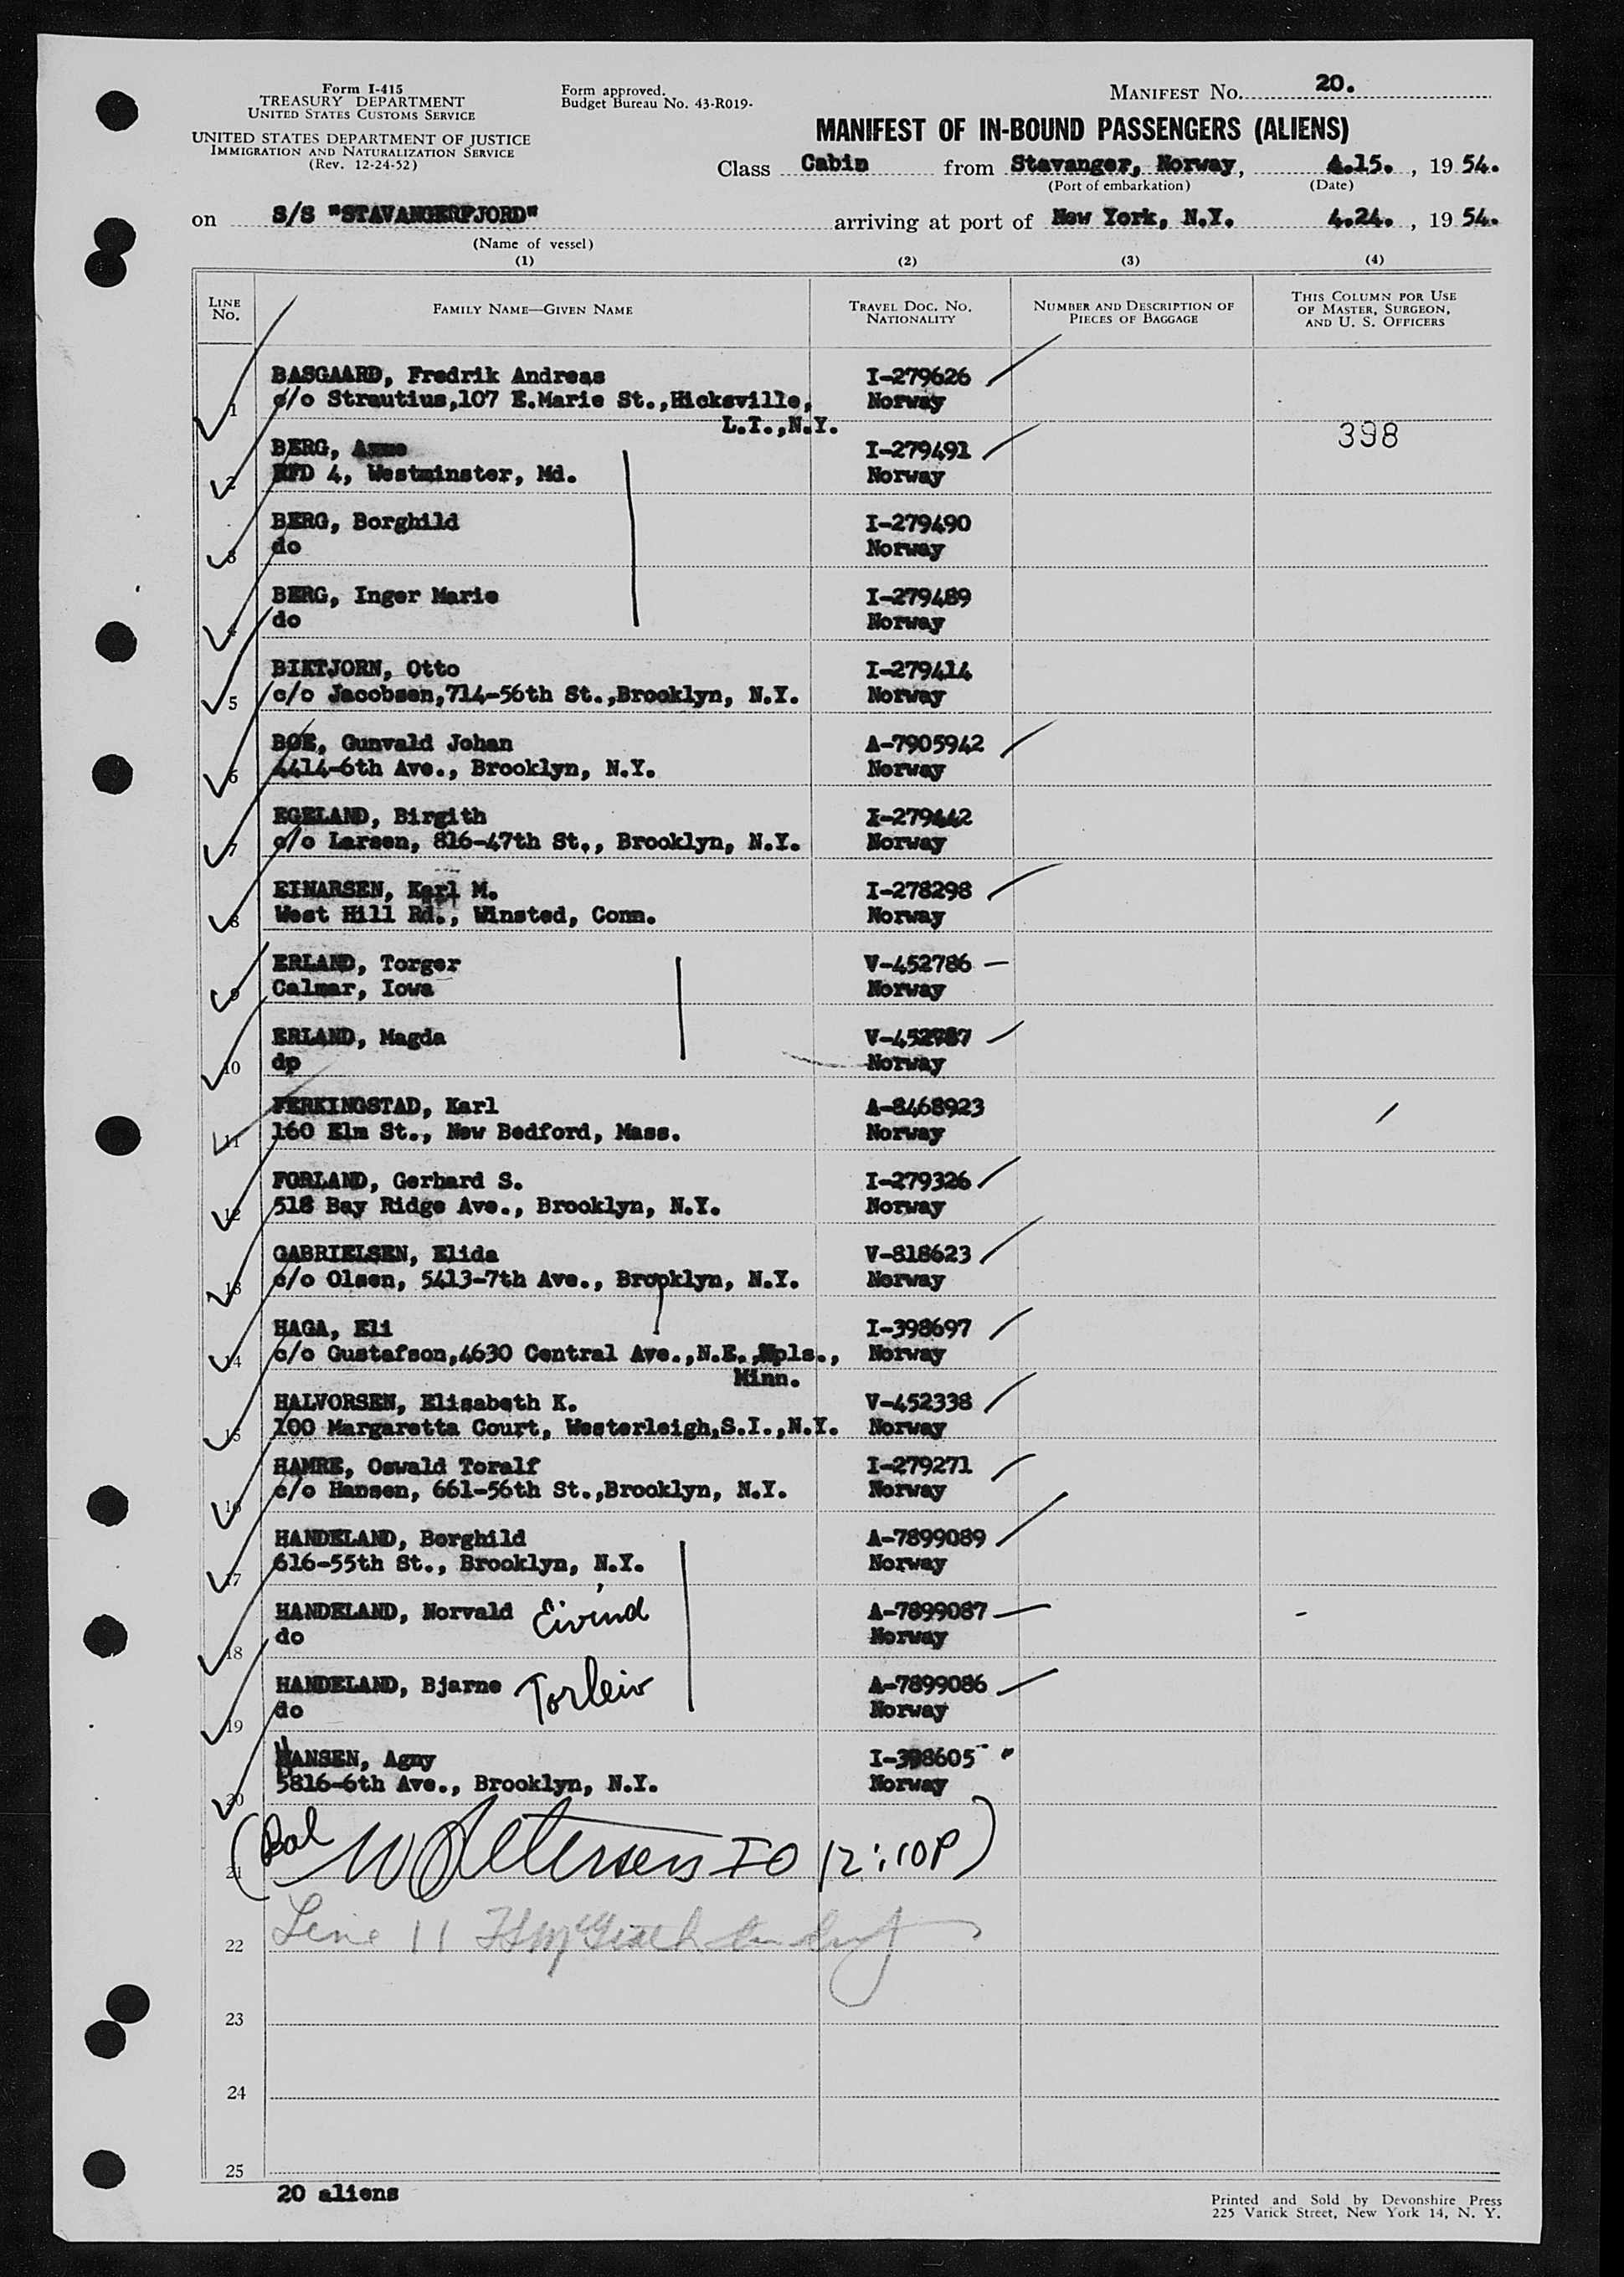 Form I-415
TREASURY DEPARTMENT
UNITED STATES CUSTOMS SERVICE
UNITED STATES DEPARTMENT OF JUSTICE
IMMIGRATION AND NATURALIZATION SERVICE
(Rev. 12-24-52)
Form approved.
Budget Bureau No. 43-R019-
MANIFEST NO. 20.
MANIFEST OF IN-BOUND PASSENGERS (ALIENS)
Class Cabin from Stavanger, Norway, 4.15. , 19 54.
(Port of embarkation) (Date)
on S/S "STAVANGERFJORD" arriving at port of New York, N.Y. 4.24. , 19 54.
(Name of vessel)
(1) (2) (3) (4)
LINE NO. FAMILY NAME—GIVEN NAME TRAVEL DOC. NO. NATIONALITY NUMBER AND DESCRIPTION OF PIECES OF BAGGAGE THIS COLUMN FOR USE OF MASTER, SURGEON, AND U. S. OFFICERS
BASGAARD, Fredrik Andreas I-279626
1 c/o Strautius,107 E.Marie St.,Hicksville, Norway
L.I.,N.Y.
398
BERG, I-279491
2 RFD 4, Westminster, Md. Norway
BERG, Borghild I-279490
3 do Norway
BERG, Inger Marie I-279489
4 do Norway
BIKTJORN, Otto I-279414
5 c/o Jacobsen,714-56th St.,Brooklyn, N.Y. Norway
BOE, Gunvald Johan A-7905942
6 4414-6th Ave., Brooklyn, N.Y. Norway
EGELAND, Birgith I-279442
7 c/o Larsen, 816-47th St., Brooklyn, N.Y. Norway
EINARSEN, Karl M. I-278298
8 West Hill Rd., Winsted, Conn. Norway
ERLAND, Torger V-452786
9 Calmar, Iowa Norway
ERLAND, Magda V-452787
10 dp Norway
FERKINGSTAD, Karl A-8468923
11 160 Elm St., New Bedford, Mass. Norway
FORLAND, Gerhard S. I-279326
12 518 Bay Ridge Ave., Brooklyn, N.Y. Norway
GABRIELSEN, Elida V-818623
13 c/o Olsen, 5413-7th Ave., Brooklyn, N.Y. Norway
HAGA, Eli I-398697
14 c/o Gustafson,4630 Central Ave.,N.E.,Mpls., Norway
Minn.
HALVORSEN, Elisabeth K. V-452338
15 100 Margaretta Court, Westerleigh,S.I.,N.Y. Norway
HAMRE, Oswald Toralf I-279271
16 c/o Hansen, 661-56th St.,Brooklyn, N.Y. Norway
HANDELAND, Borghild A-7899089
17 616-55th St., Brooklyn, N.Y. Norway
HANDELAND, Norvald Eivind A-7899087
18 do Norway
HANDELAND, Bjarne Torleiv A-7899086
19 do Norway
HANSEN, Agny I-398605
20 5816-6th Ave., Brooklyn, N.Y. Norway
21 (Bal W Petersen IO 12:10P)
22 Line 11
23
24
25
20 aliens
Printed and Sold by Devonshire Press
225 Varick Street, New York 14, N. Y.